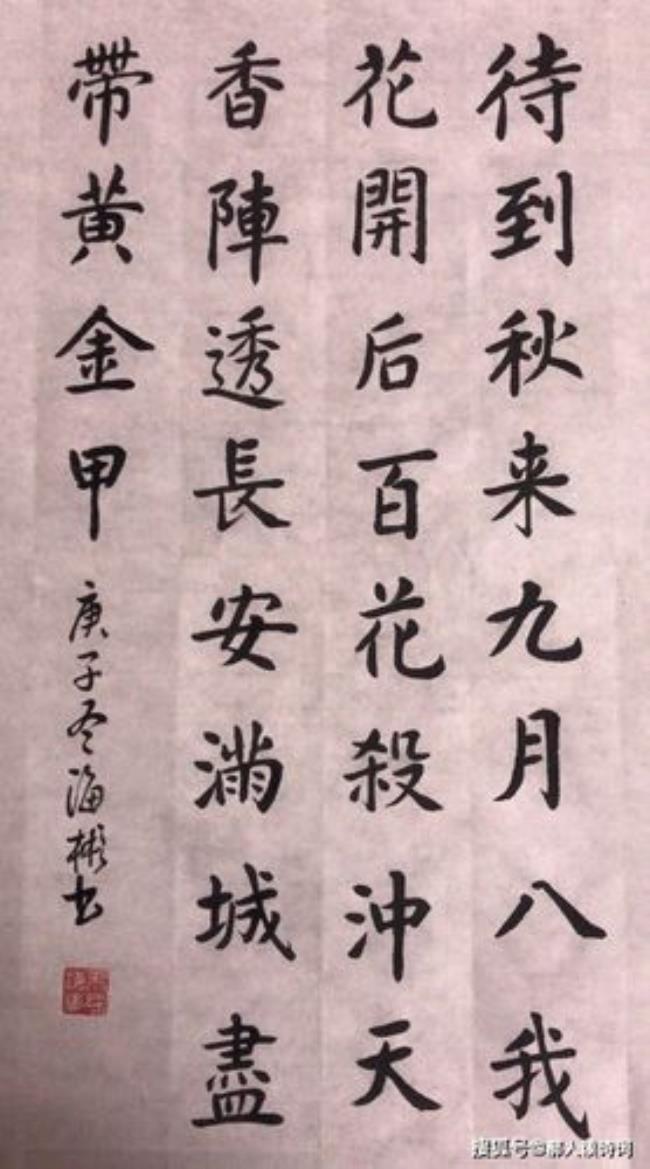 待到秋来九月八我
花開后百花殺沖天
香陣透長安滿城盡
帶黃金甲
庚子冬海彬书
搜狐号@